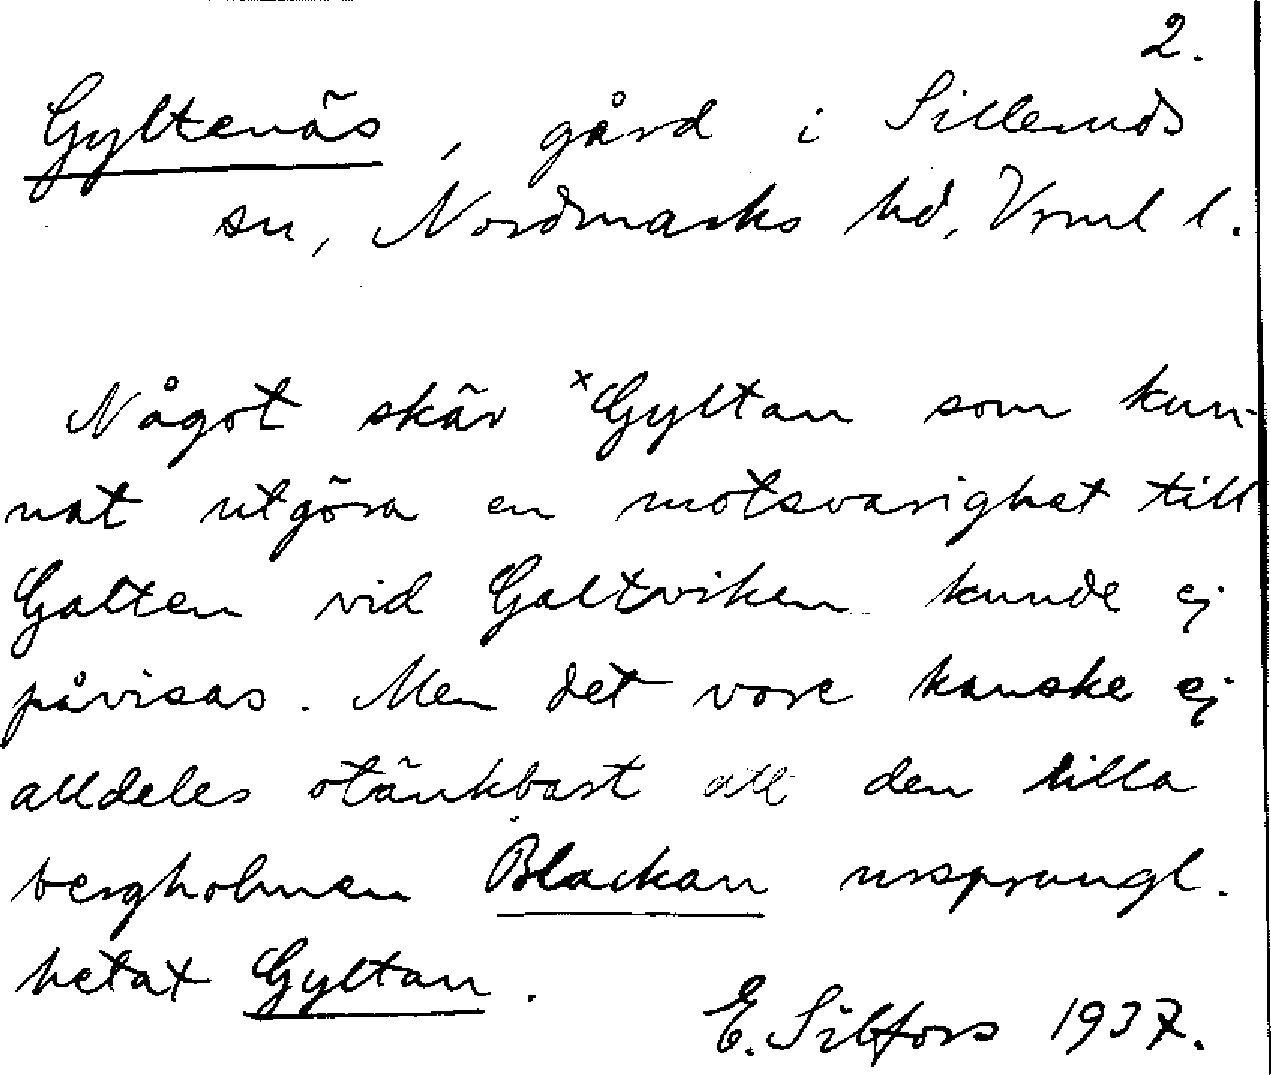 2.
Gyltenäs, gård i Silleruds
sn, Nordmarks hd, Vrml l.
Något skär *Gyltan som kun-
nat utgöra en motsvarighet till
Galten vid Galtviken kunde ej
påvisas. Men det vore kanske ej
alldeles otänkbart att den lilla
bergholmen Blackan ursprungl.
hetat Gyltan.
E. Silfors 1937.